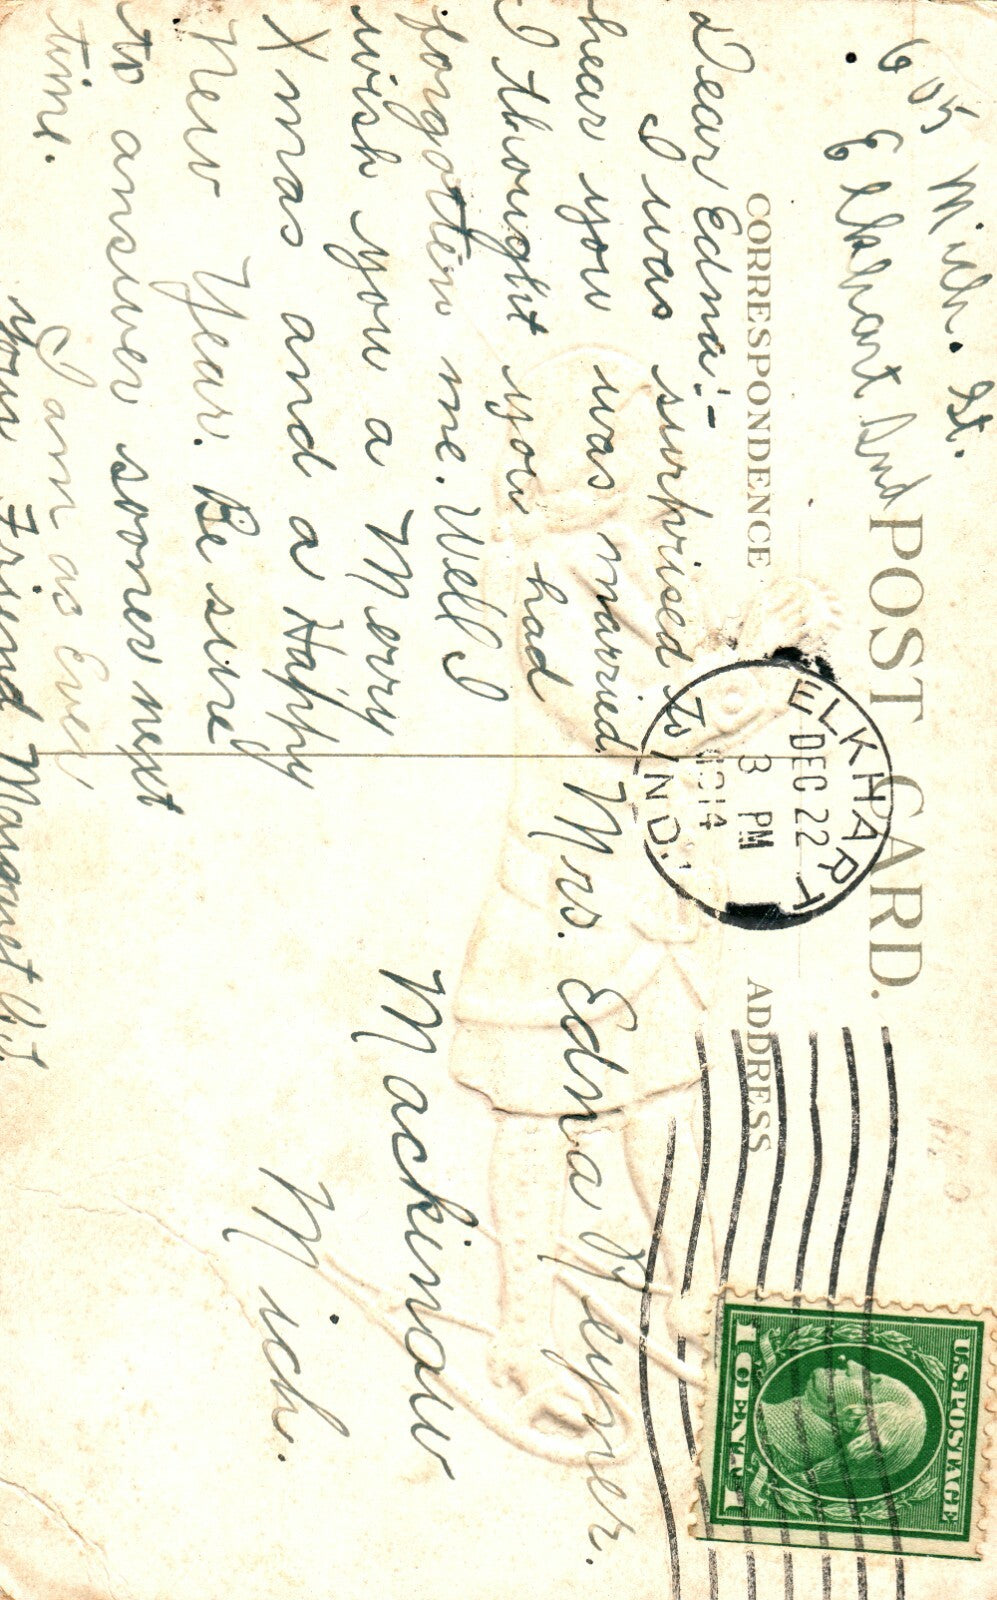 605 Mich. St.
Elkhart Ind
POST CARD.
CORRESPONDENCE
ADDRESS
ELKHART
DEC 22
3 PM
1914
IND.
U.S. POSTAGE
1 CENT 1
Dear Edna:-
I was surprised to
hear you was married.
I thought you had
forgotten me. Well I
wish you a Merry
Xmas and a Happy
New Year. Be sure
to answer sooner next
time.
I am as Ever
your Friend Margaret
Mrs. Edna Reyner.
Mackinaw
Mich.